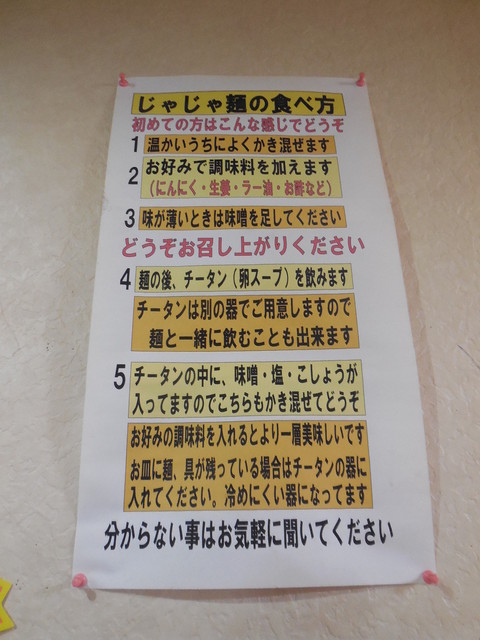 じゃじゃ麺の食べ方
初めての方はこんな感じでどうぞ
1 温かいうちによくかき混ぜます
2 お好みで調味料を加えます
(にんにく・生姜・ラー油・お酢など)
3 味が薄いときは味噌を足してください
どうぞお召し上がりください
4 麺の後、チータン(卵スープ)を飲みます
チータンは別の器でご用意しますので
麺と一緒に飲むことも出来ます
5 チータンの中に、味噌・塩・こしょうが
入ってますのでこちらもかき混ぜてどうぞ
お好みの調味料を入れるとより一層美味しいです
お皿に麺、具が残っている場合はチータンの器に
入れてください。冷めにくい器になってます
分からない事はお気軽に聞いてください